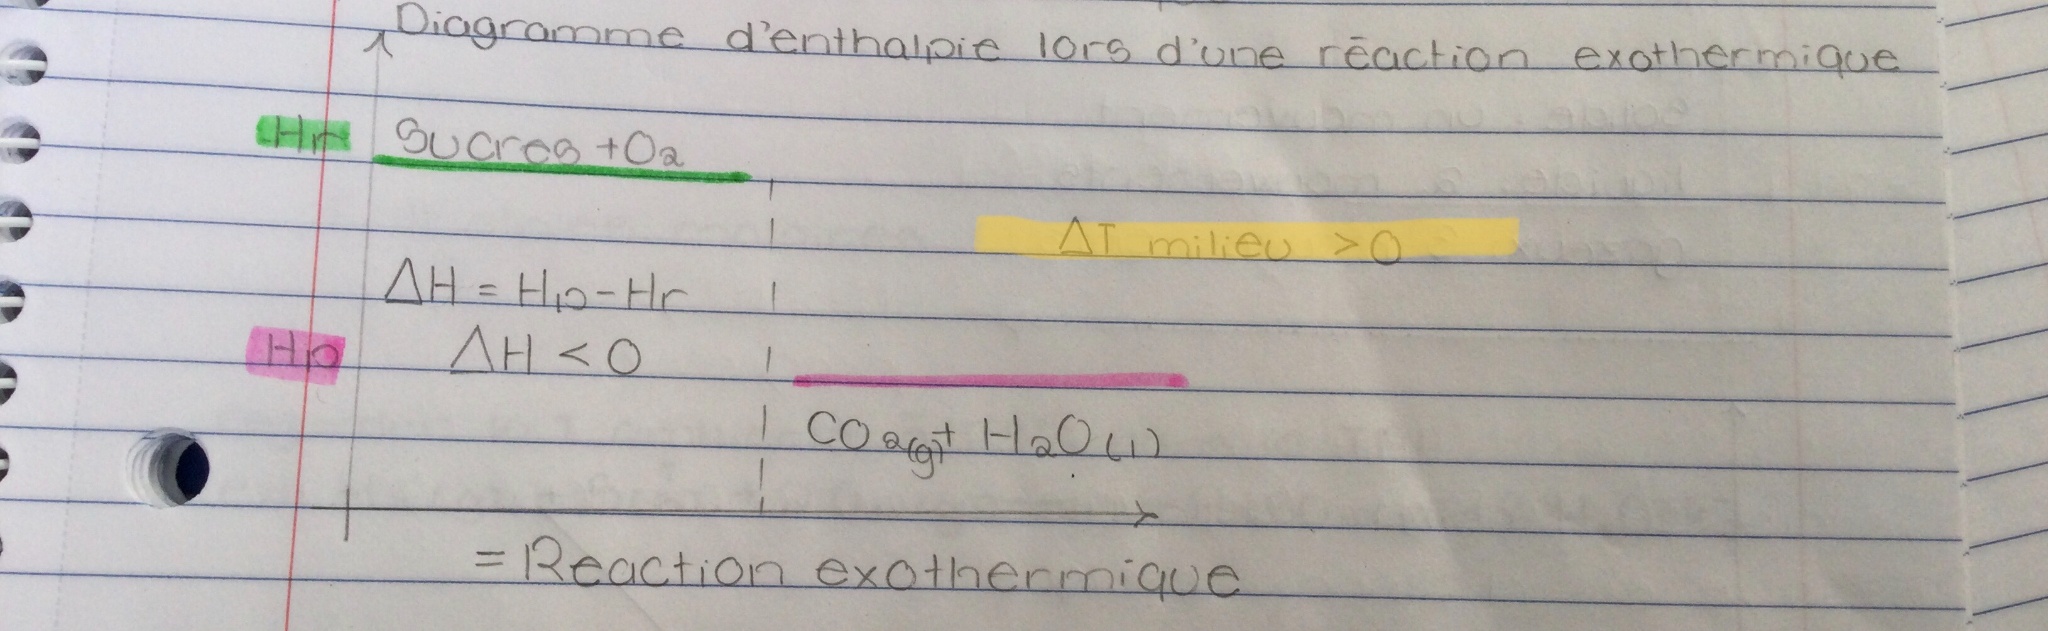 Diagramme d'enthalpie lors d'une réaction exothermique
Hr Sucres + O2
ΔT milieu > 0
ΔH = Hp - Hr
Hp ΔH < 0
CO2(g) + H2O(l)
= Reaction exothermique